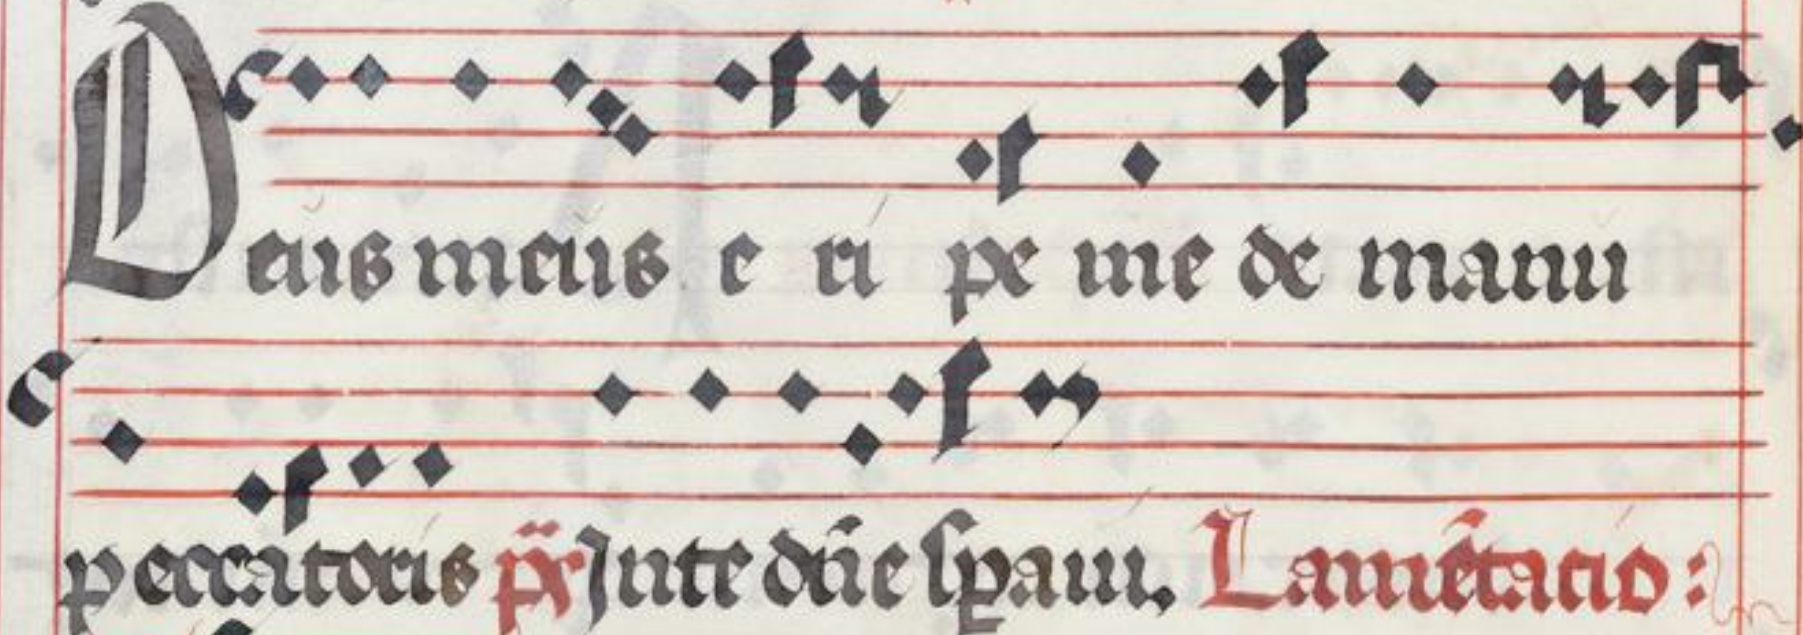 Deus meus e ri pe me de manu
peccatoris p̄s Jn te dn̄e sꝑaui. Lamētacio: